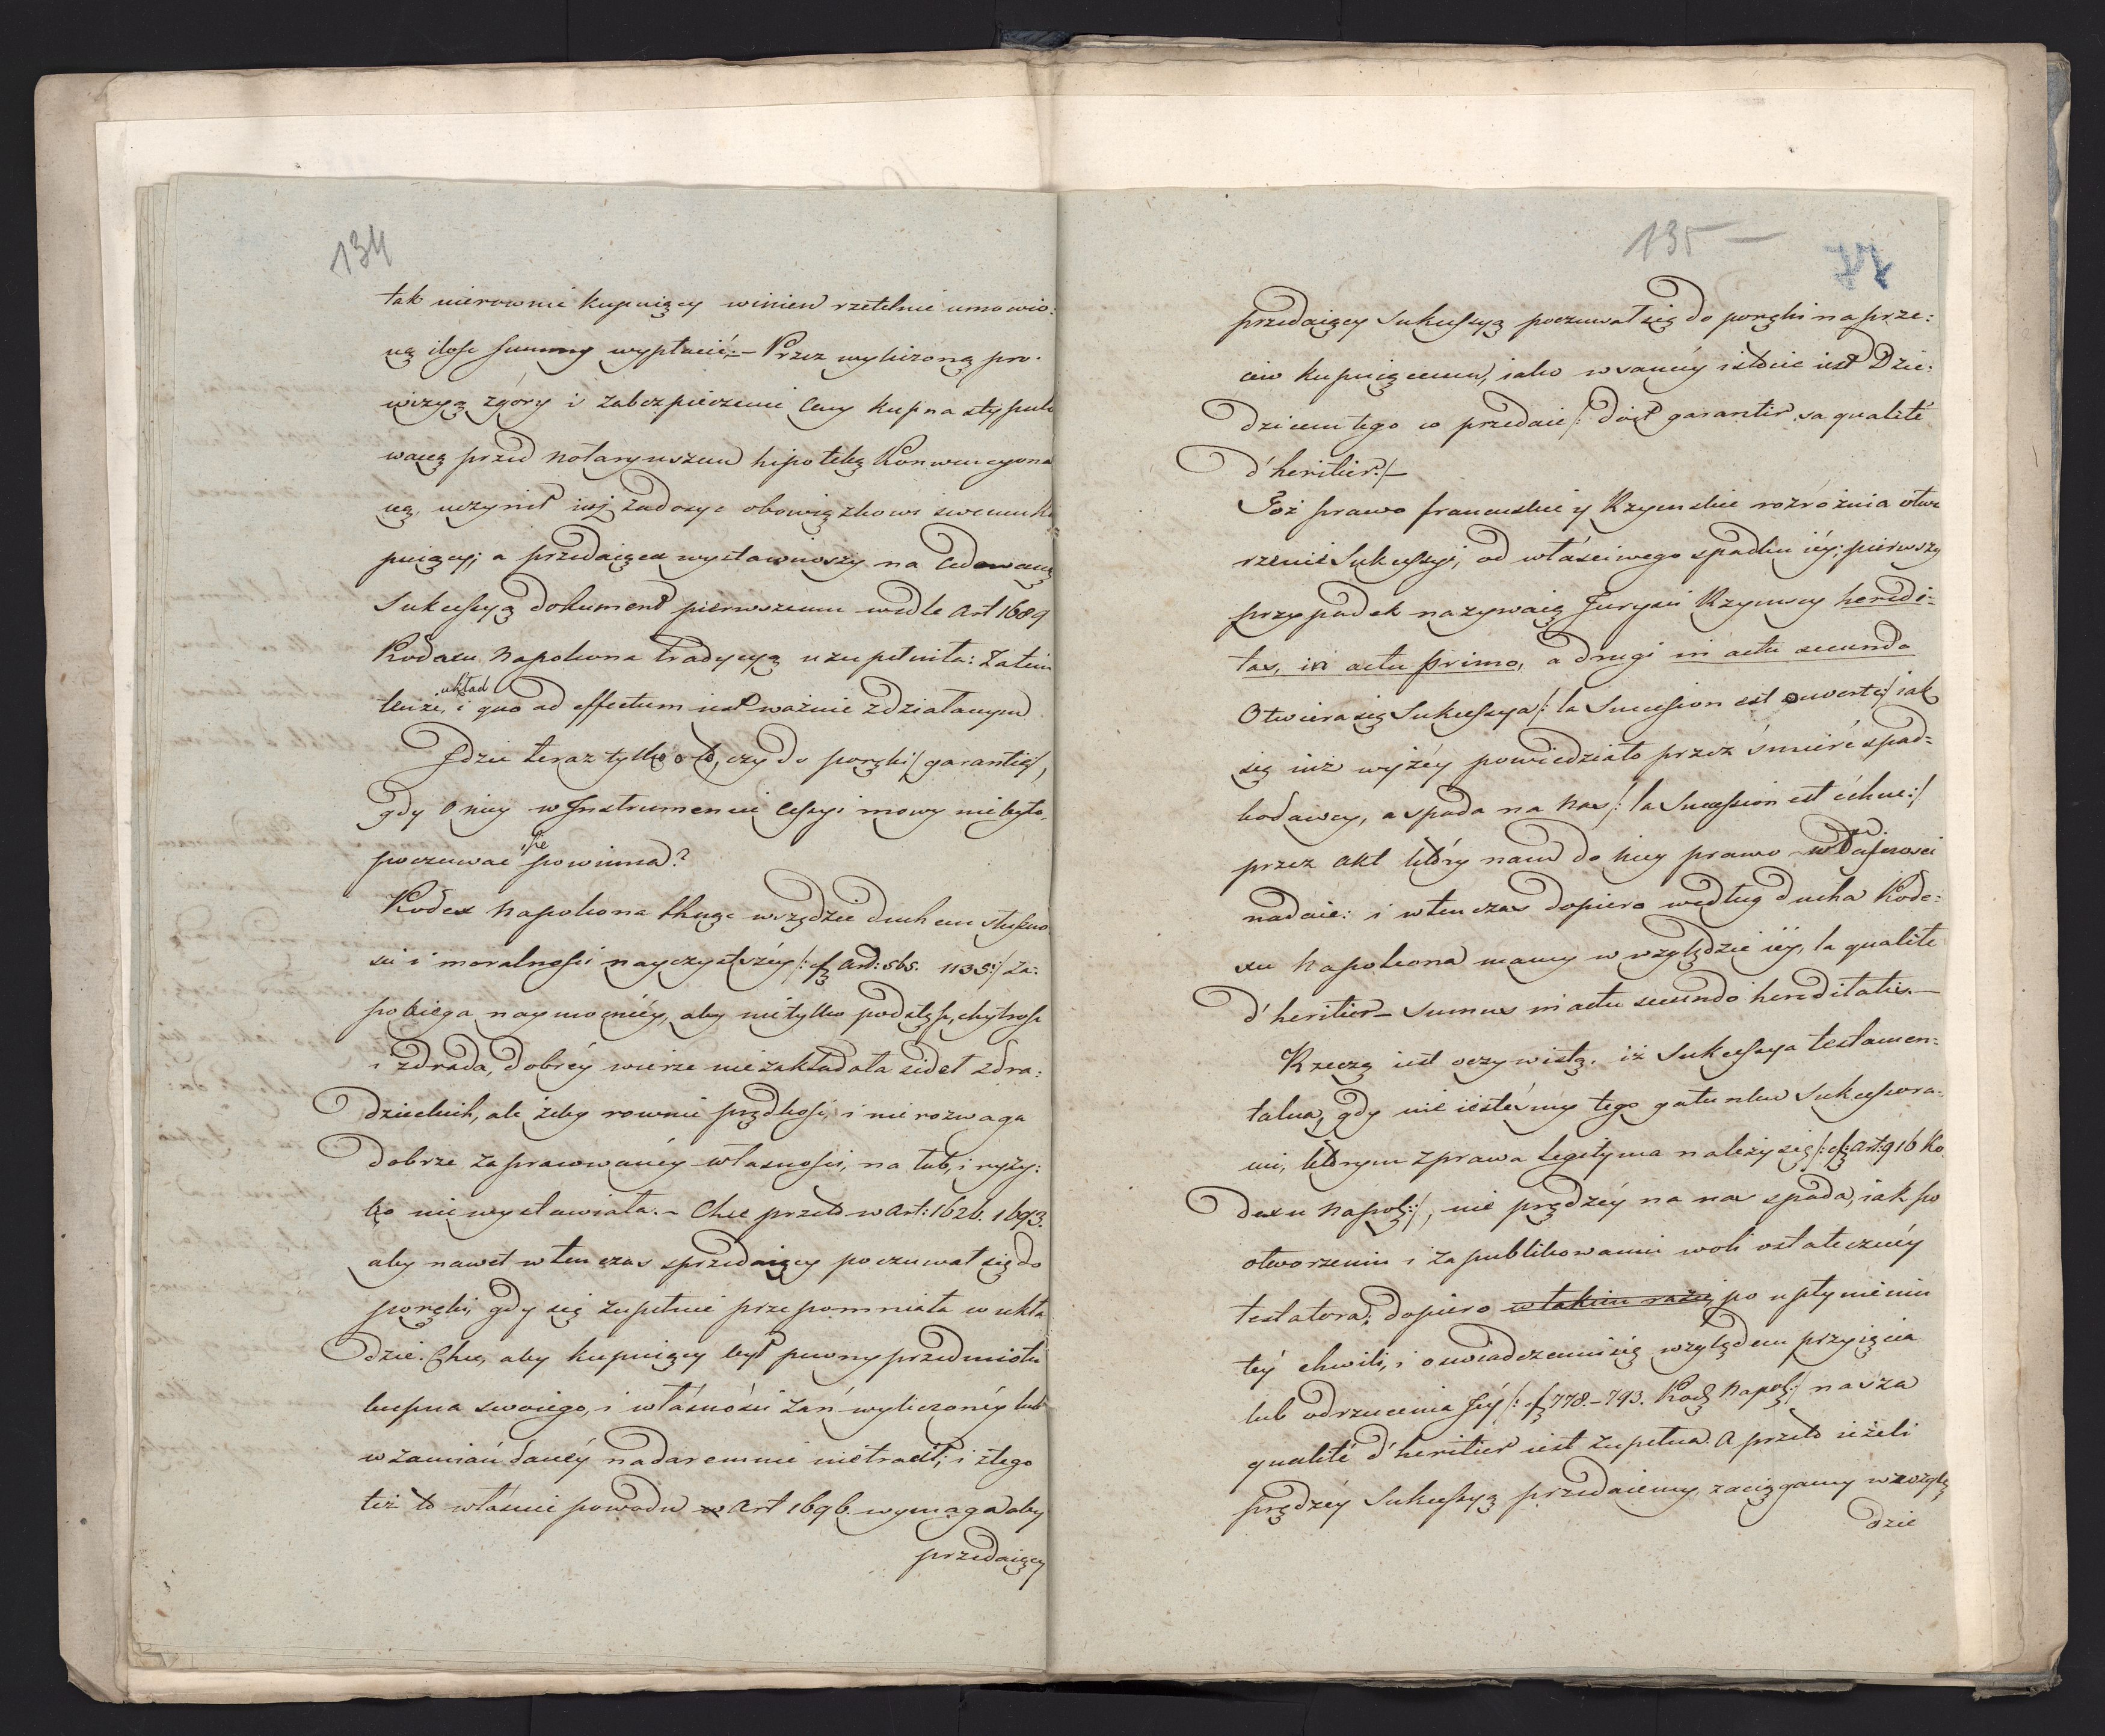 134
tak nierownie kupuiący winien rzetelnie umowio:
ną ilość summy wypłacić. – Przez wyliczoną pro:
wizyą zgóry i zabezpieczenie Ceny kupna stypulo
waną przed notaryuszem hipoteką Konwencyona
ną, uczynił iuż zadosyc obowiązkowi swemu ku
puiący; a przedaiąca wystawiwszy na Cedowaną
Sukcessyą dokument pierwszemu wedle Art 1689
Kodaxu Napoleona tradycyą uzupełniła: Zatem
układ
tenże, i quo ad effectum iest ważnie zdziałanym
Jdzie teraz tylko o to, czy do poręki /garantie/,
gdy o niey w Jnstrumencie Cessyi mowy niebyło,
się
poczuwać powinna?
Kodex Napoleona tknąc wszędzie duchem słuszno
ści i moralności nayczystszéy /: cf Art: 565. 1135:/ za:
pobiega naymocniéy, aby nietylko podstęp, chytrość
i zdrada, dobréy wierze niezakładała sideł zdra:
dzieckich, ale żeby rownie prędkość, i nie rozwaga
dobrze zapracowanéy własności, na łub, i ryzy:
ko nie wystawiała. – Chce przeto w Art: 1626. 1693.
aby nawet w ten czas sprzedaiący poczuwał się do
poręki, gdy się zupełnie przepomniała w ukła
dzie. Chce, aby kupuiący był pewny przedmiotu
kupna swoiego, i własności zań wyliczonéy lub
w zamian danéy nadaremnie nietracił; i z tego
też to własnie powodu w Art 1696. wymaga aby
przedaiący
135 –
przedaiący Sukcessyą poczuwał się do poręki naprze:
ciw kupuiącemu, iako w saméy istocie iest Dzie:
dzicem tego co przedaie /: doit garantir sa qualité
d'heritier:/ –
Toż prawo francuskie y Rzymskie rozróżnia otwo
rzenie Sukcessyi, od właściwego spadku iéy; pierwszy
przypadek nazywaią Juryści Rzymscy heredi:
tas, in actu primo, a drugi in actu secundo
Otwiera się Sukcessya /: la Succession est ouverte:/ iak
się iuż wyżéy powiedziało przez śmierć spad:
kodawcy, a spada na nas /: la Succession est échue:/
przez akt który nam do niey prawo własności
nadaie: i wtenczas dopiero według ducha Kode:
xu Napoleona mamy w względzie iéy, la qualité
d'heritier – sumus in actu secundo hereditatis. –
Rzeczą iest oczywistą, iż Sukcessya testamen:
talna, gdy nie iesteśmy tego gatunku Sukcessora:
mi, którym z prawa Legityma należy się /: cf Art: 916 Ko
dexu Napol:/, nie prędzéy na nas spada, iak po
otworzeniu i zapublikowaniu woli ostateczney
testatora; dopiero w takim razie po upłynieniu
téy chwili, i oswiadczeniu się względem przyięcia
lub odrzucenia Jéy /: cf 778. – 793. Kod. Napol:/ nasza
qualité d'heritier iest zupełna. A przeto ieżeli
prędzéy Sukcessyą przedaiemy, zaciągamy w wzglę
dzie